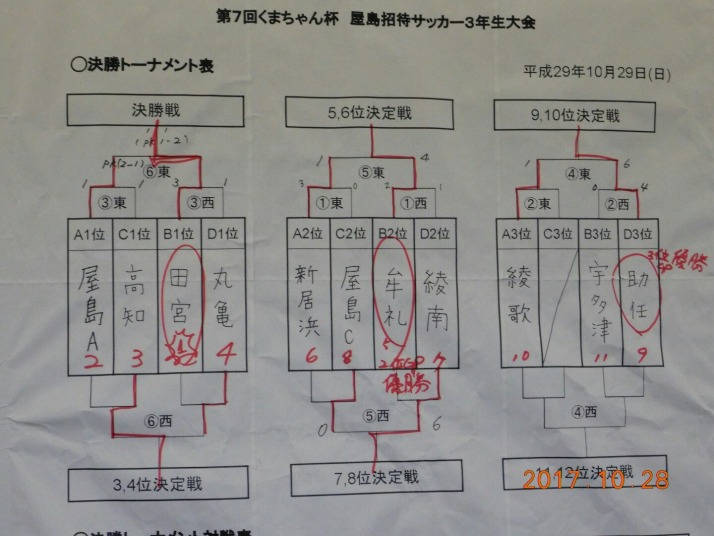 第7回くまちゃん杯 屋島招待サッカー3年生大会
〇決勝トーナメント表
平成29年10月29日(日)
決勝戦
5,6位決定戦
9,10位決定戦
(PK1-2)
PK(2-1)
⑥東
⑤東
④東
1 1 3 1
3 0 4 1
1 6 0 4
③東 ③西 ①東 ①西 ②東 ②西
A1位 C1位 B1位 D1位
A2位 C2位 B2位 D2位
A3位 C3位 B3位 D3位
屋島A 高知 田宮 丸亀
新居浜 屋島C 牟礼 綾南
綾歌 宇多津 助任
3位GP優勝
2 3 1 4
6 8 5 7
10 11 9
2位GP優勝
⑥西
0 ⑤西 6
④西
3,4位決定戦
7,8位決定戦
11,12位決定戦
2017.10.28